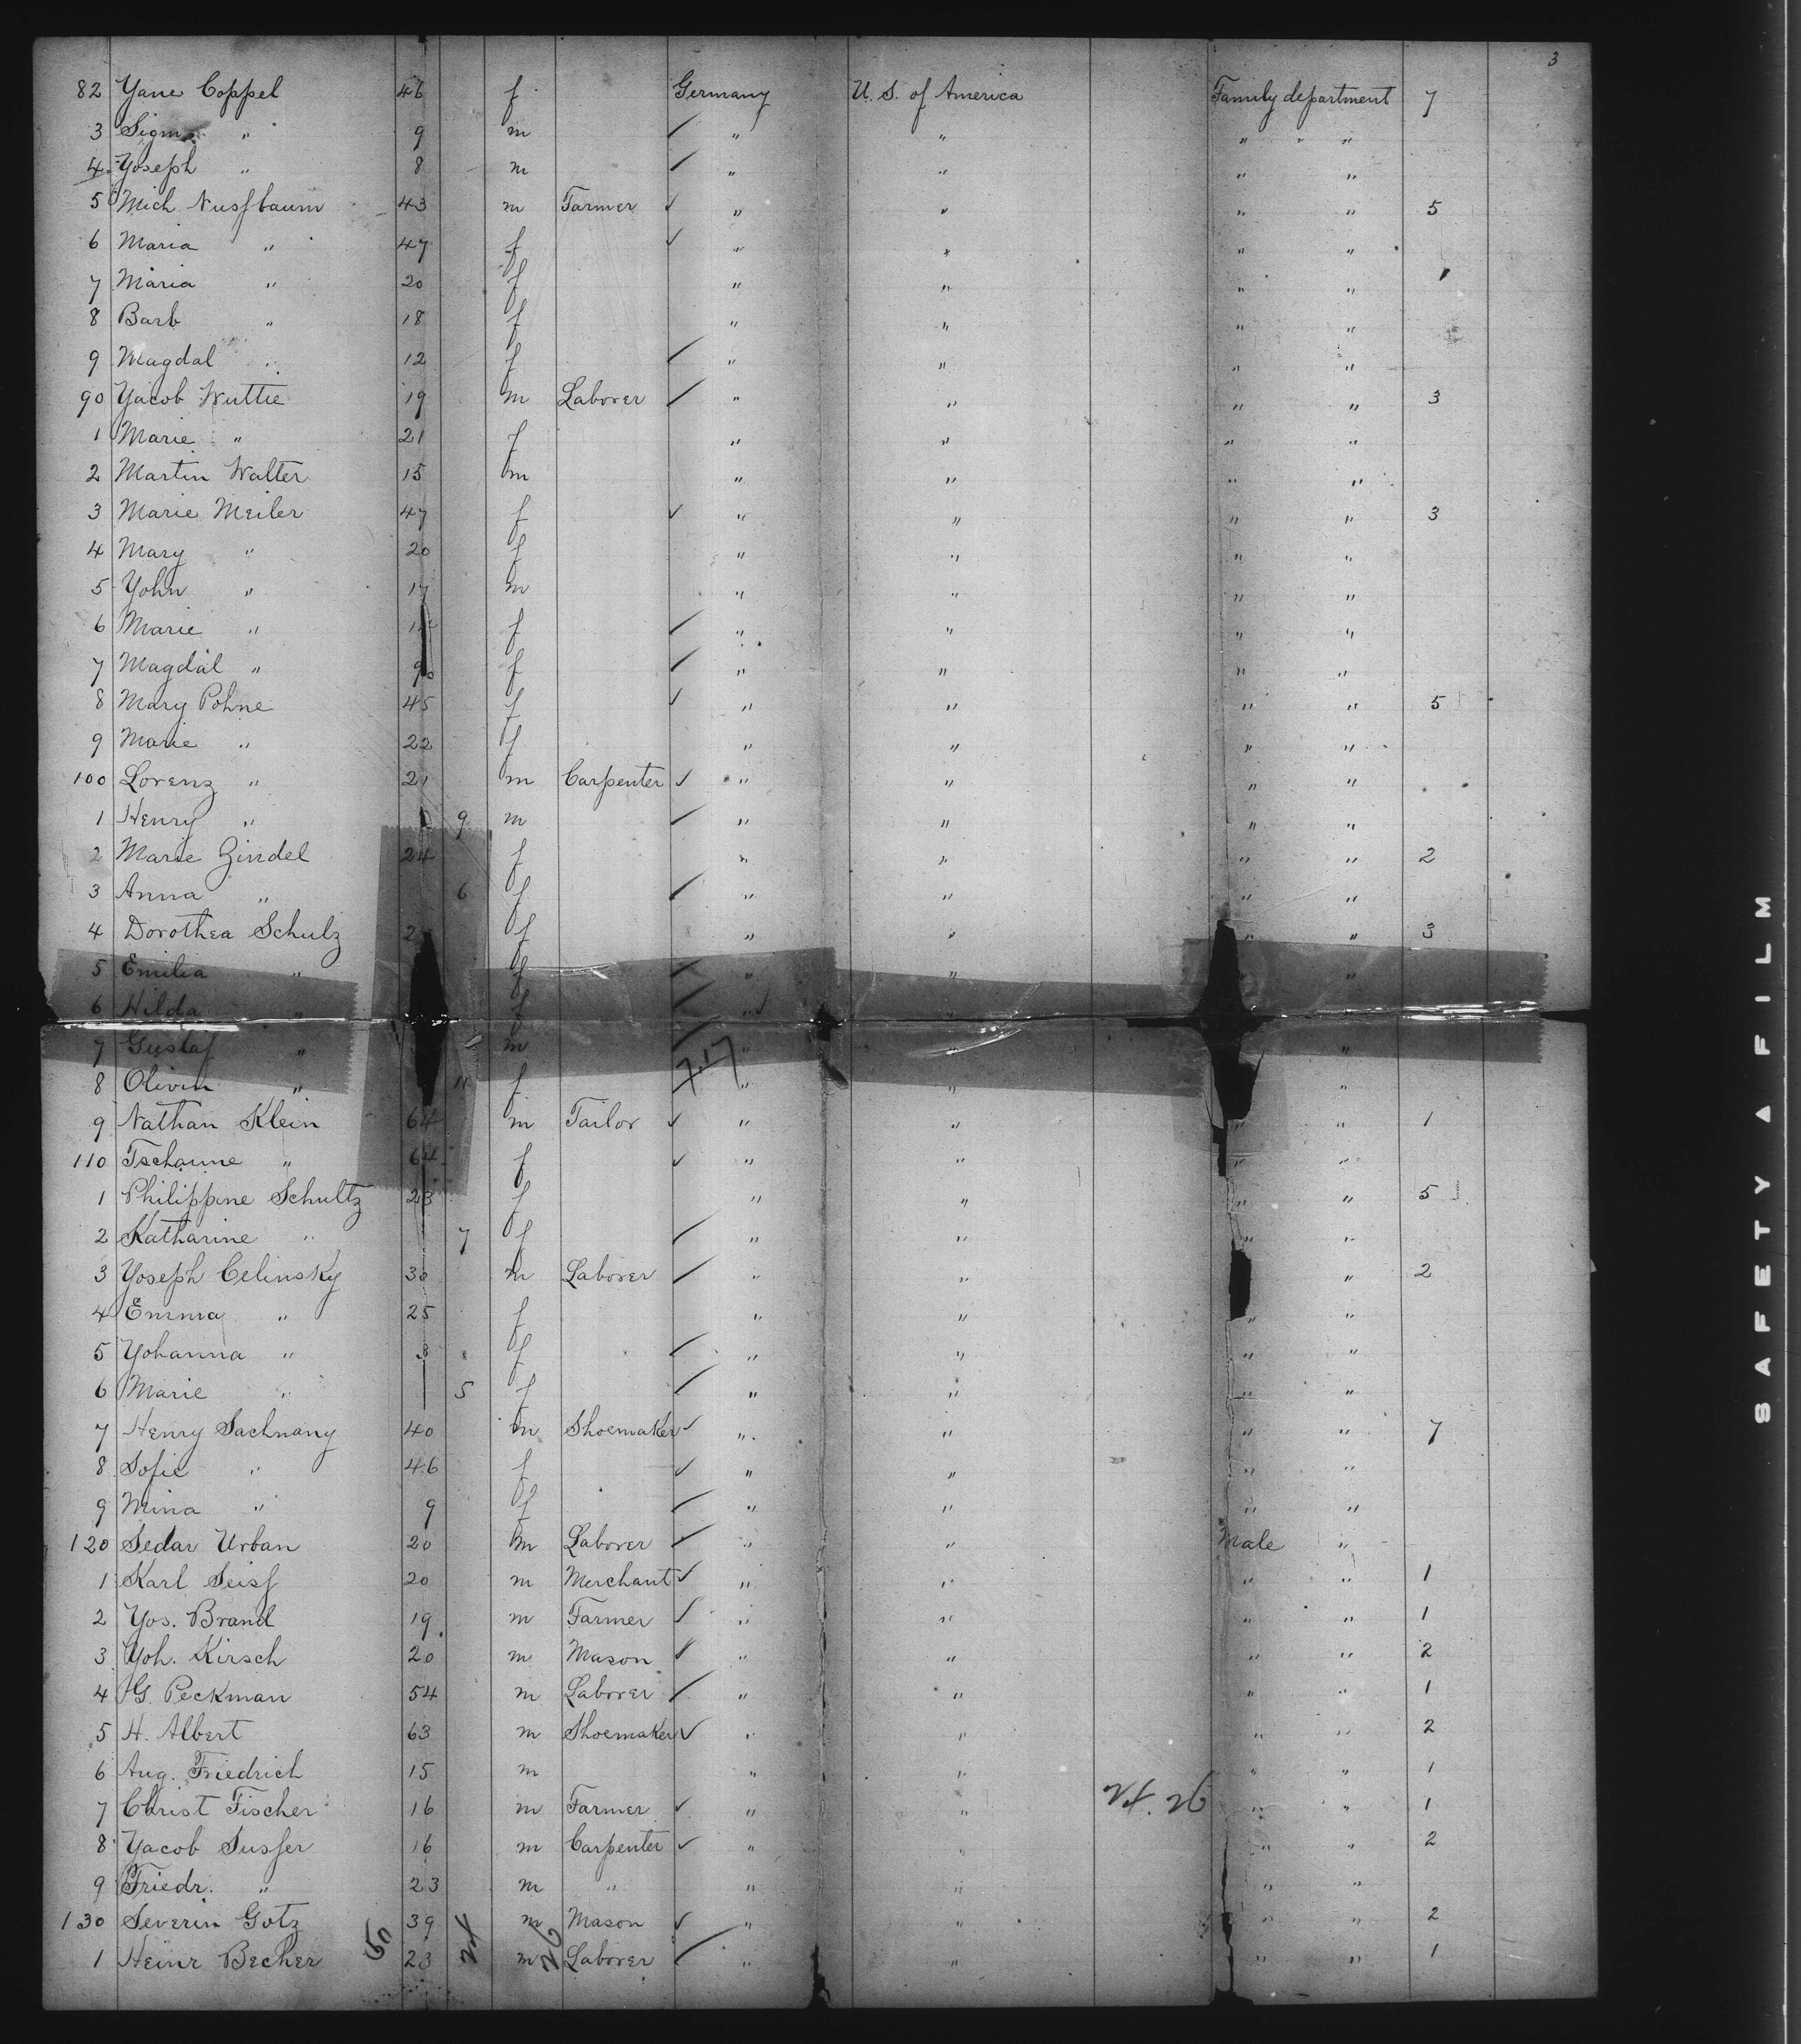 3
82 Yane Coppel 46 f Germany U. S. of America Family department 7
3 Sigm. " 9 m " " " "
4 Yoseph " 8 m " " " "
5 Mich Nussbaum 43 m Farmer " " " " 5
6 Maria " 47 f " " " "
7 Maria " 20 f " " " "
8 Barb " 18 f " " " "
9 Magdal " 12 f " " " "
90 Yacob Wuttie 19 m Laborer " " " " 3
1 Marie " 21 f " " " "
2 Martin Walter 15 m " " " "
3 Marie Meiler 47 f " " " " 3
4 Mary " 20 f " " " "
5 Yohn " 17 m " " " "
6 Marie " f " " " "
7 Magdal " 9 f " " " "
8 Mary Pohne 45 f " " " " 5
9 Marie " 22 f " " " "
100 Lorenz " 21 m Carpenter " " " "
1 Henry " 9 m " " " "
2 Marie Zindel 24 f " " " " 2
3 Anna " 6 f " " " "
4 Dorothea Schulz f " " " " 3
5 Emilia " f " " " "
6 Hilda " f "
7 Gustaf " m " "
8 Olivin " 11 f 7.17 " " "
9 Nathan Klein 64 m Tailor " " " " 1
110 Tschanne " 64 f " " " "
1 Philippine Schultz 23 f " " " " 5
2 Katharine " 7 f " " " "
3 Yoseph Celinsky 30 m Laborer " " " 2
4 Emma " 25 f " " " "
5 Yohanna " 3 f " " " "
6 Marie " 5 f " " " "
7 Henry Sachnany 40 m Shoemaker " " " " 7
8 Sofie " 46 f " " " "
9 Mina " 9 f " " " "
120 Sedar Urban 20 m Laborer " " Male "
1 Karl Seiss 20 m Merchant " " " " 1
2 Yos. Brand 19 m Farmer " " " " 1
3 Yoh. Kirsch 20 m Mason " " " " 2
4 G. Peckman 54 m Laborer " " " " 1
5 H. Albert 63 m Shoemaker " " " " 2
6 Aug. Friedrich 15 m " " " " 1
7 Christ Fischer 16 m Farmer " " 24. 26 " " 1
8 Yacob Susser 16 m Carpenter " " " " 2
9 Friedr. " 23 m " " " " "
130 Severin Gotz 39 m Mason " " " " 2
1 Heinr Becher 50 23 24 m 26 Laborer " " " " 1
SAFETY FILM